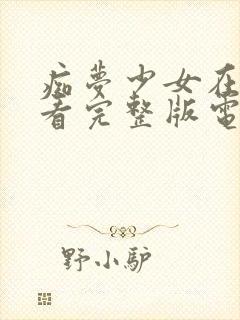 痴夢少女在
看完整版電
野小驴